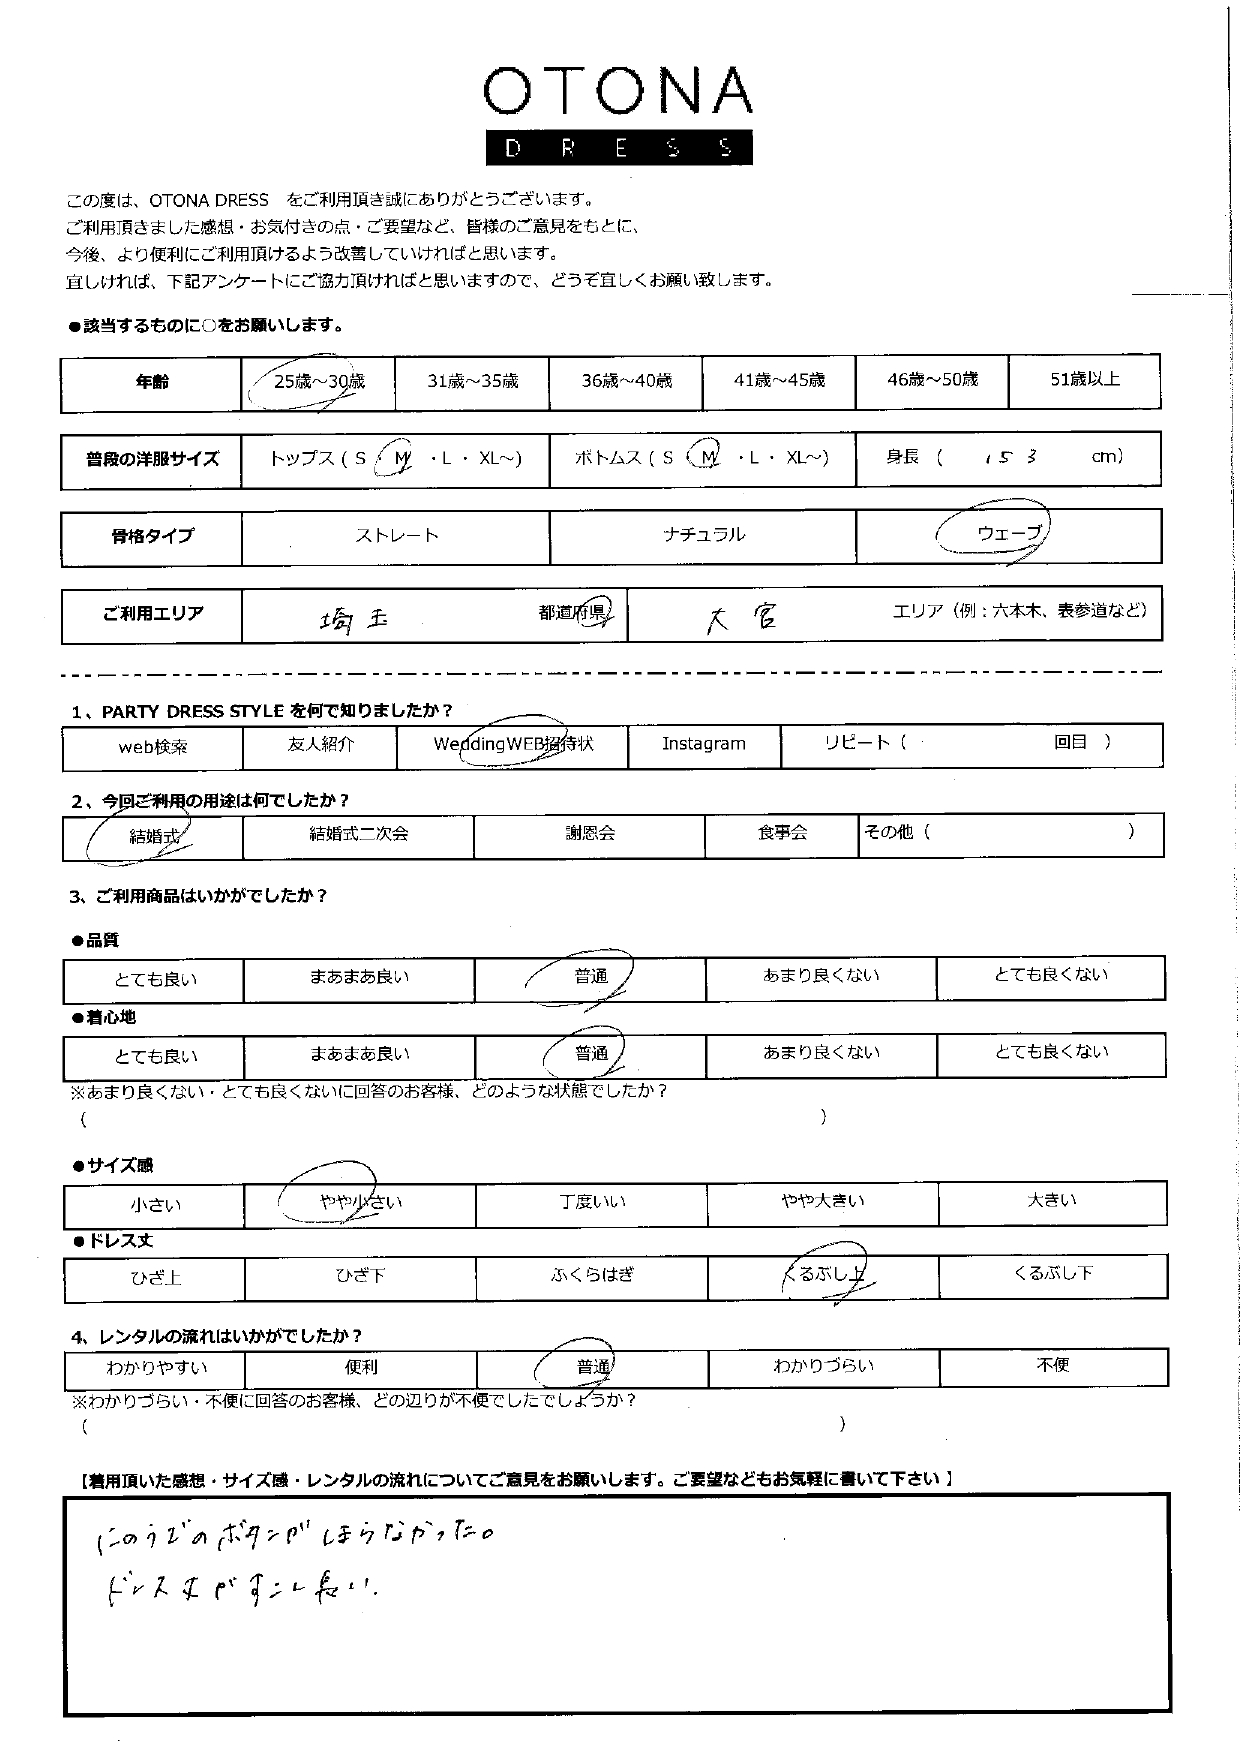 OTONA
DRESS
この度は、OTONA DRESS をご利用頂き誠にありがとうございます。
ご利用頂きました感想・お気付きの点・ご要望など、皆様のご意見をもとに、
今後、より便利にご利用頂けるよう改善していければと思います。
宜しければ、下記アンケートにご協力頂ければと思いますので、どうぞ宜しくお願い致します。
●該当するものに○をお願いします。
年齢 25歳～30歳 31歳～35歳 36歳～40歳 41歳～45歳 46歳～50歳 51歳以上
普段の洋服サイズ トップス ( S ・ M ・L ・ XL～) ボトムス ( S ・ M ・L ・ XL～) 身長 ( 153 cm)
骨格タイプ ストレート ナチュラル ウェーブ
ご利用エリア 埼玉 都道府県 大宮 エリア（例：六本木、表参道など）
1、PARTY DRESS STYLE を何で知りましたか？
web検索 友人紹介 WeddingWEB招待状 Instagram リピート（ 回目 ）
2、今回ご利用の用途は何でしたか？
結婚式 結婚式二次会 謝恩会 食事会 その他（ ）
3、ご利用商品はいかがでしたか？
●品質
とても良い まあまあ良い 普通 あまり良くない とても良くない
●着心地
とても良い まあまあ良い 普通 あまり良くない とても良くない
※あまり良くない・とても良くないに回答のお客様、どのような状態でしたか？
( )
●サイズ感
小さい やや小さい 丁度いい やや大きい 大きい
●ドレス丈
ひざ上 ひざ下 ふくらはぎ くるぶし上 くるぶし下
4、レンタルの流れはいかがでしたか？
わかりやすい 便利 普通 わかりづらい 不便
※わかりづらい・不便に回答のお客様、どの辺りが不便でしたでしょうか？
( )
【着用頂いた感想・サイズ感・レンタルの流れについてご意見をお願いします。ご要望などもお気軽に書いて下さい 】
にのうでのボタンがしまらなかった。
ドレス丈がすこし長い.